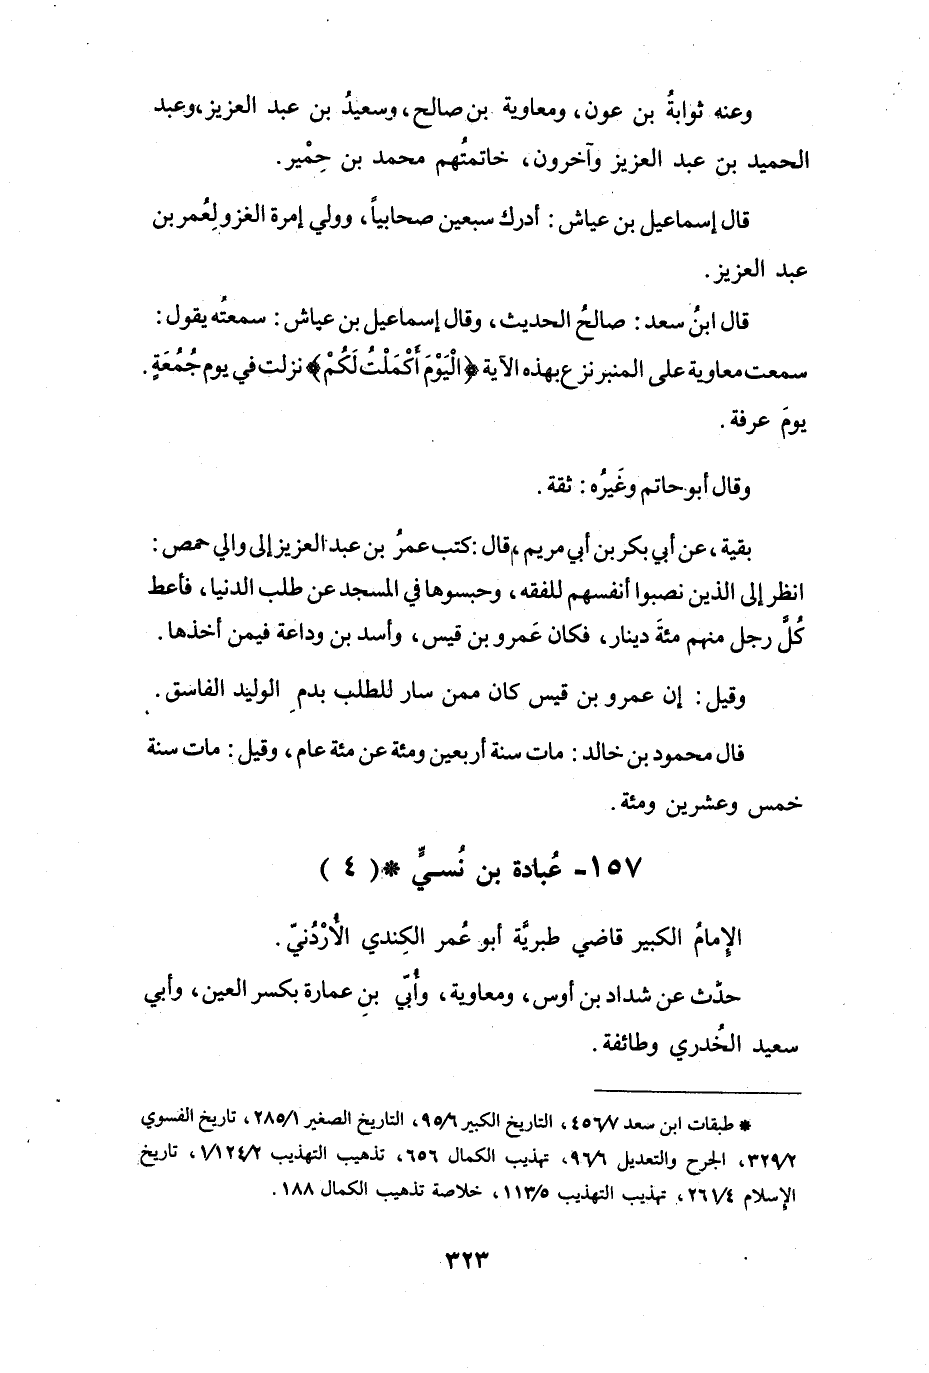 وعنه ثوابةُ بن عون، ومعاوية بن صالح، وسعيدُ بن عبد العزيز، وعبد
الحميد بن عبد العزيز وآخرون، خاتمتُهم محمد بن حِمْير.
قال إسماعيل بن عياش: أدرك سبعين صحابياً، وولي إمرة الغزو لِعُمر بن
عبد العزيز.
قال ابنُ سعد: صالحُ الحديث، وقال إسماعيل بن عياش: سمعتُه يقول:
سمعت معاوية على المنبر نزع بهذه الآية ﴿الْيَوْمَ أَكْمَلْتُ لَكُمْ﴾ نزلت في يوم جُمُعَةٍ.
يومَ عرفة.
وقال أبو حاتم وغَيرُه: ثقة.
بقية، عن أبي بكر بن أبي مريم، قال: كتب عمرُ بن عبد العزيز إلى والي حمص:
انظر إلى الذين نصبوا أنفسهم للفقه، وحبسوها في المسجد عن طلب الدنيا، فأعط
كُلَّ رجل منهم مئةَ دينار، فكان عَمرو بن قيس، وأسد بن وداعة فيمن أخذها.
وقيل: إن عمرو بن قيس كان ممن سار للطلب بدم الوليد الفاسق.
قال محمود بن خالد: مات سنة أربعين ومئة عن مئة عام، وقيل: مات سنة
خمس وعشرين ومئة.
١٥٧- عُبادة بن نُسيٍّ *( ٤ )
الإمامُ الكبير قاضي طبريَّة أبو عُمر الكِندي الأُرْدُنيّ.
حدّث عن شداد بن أوس، ومعاوية، وأُبَيّ بنِ عمارة بكسر العين، وأبي
سعيد الخُدري وطائفة.
* طبقات ابن سعد ٤٥٦/٧، التاريخ الكبير ٩٥/٦، التاريخ الصغير ٢٨٥/١، تاريخ الفسوي
٣٢٩/٢، الجرح والتعديل ٩٦/٦، تهذيب الكمال ٦٥٦، تذهيب التهذيب ١/١٢٤/٢، تاريخ
الإسلام ٢٦١/٤، تهذيب التهذيب ١١٣/٥، خلاصة تذهيب الكمال ١٨٨.
٣٢٣